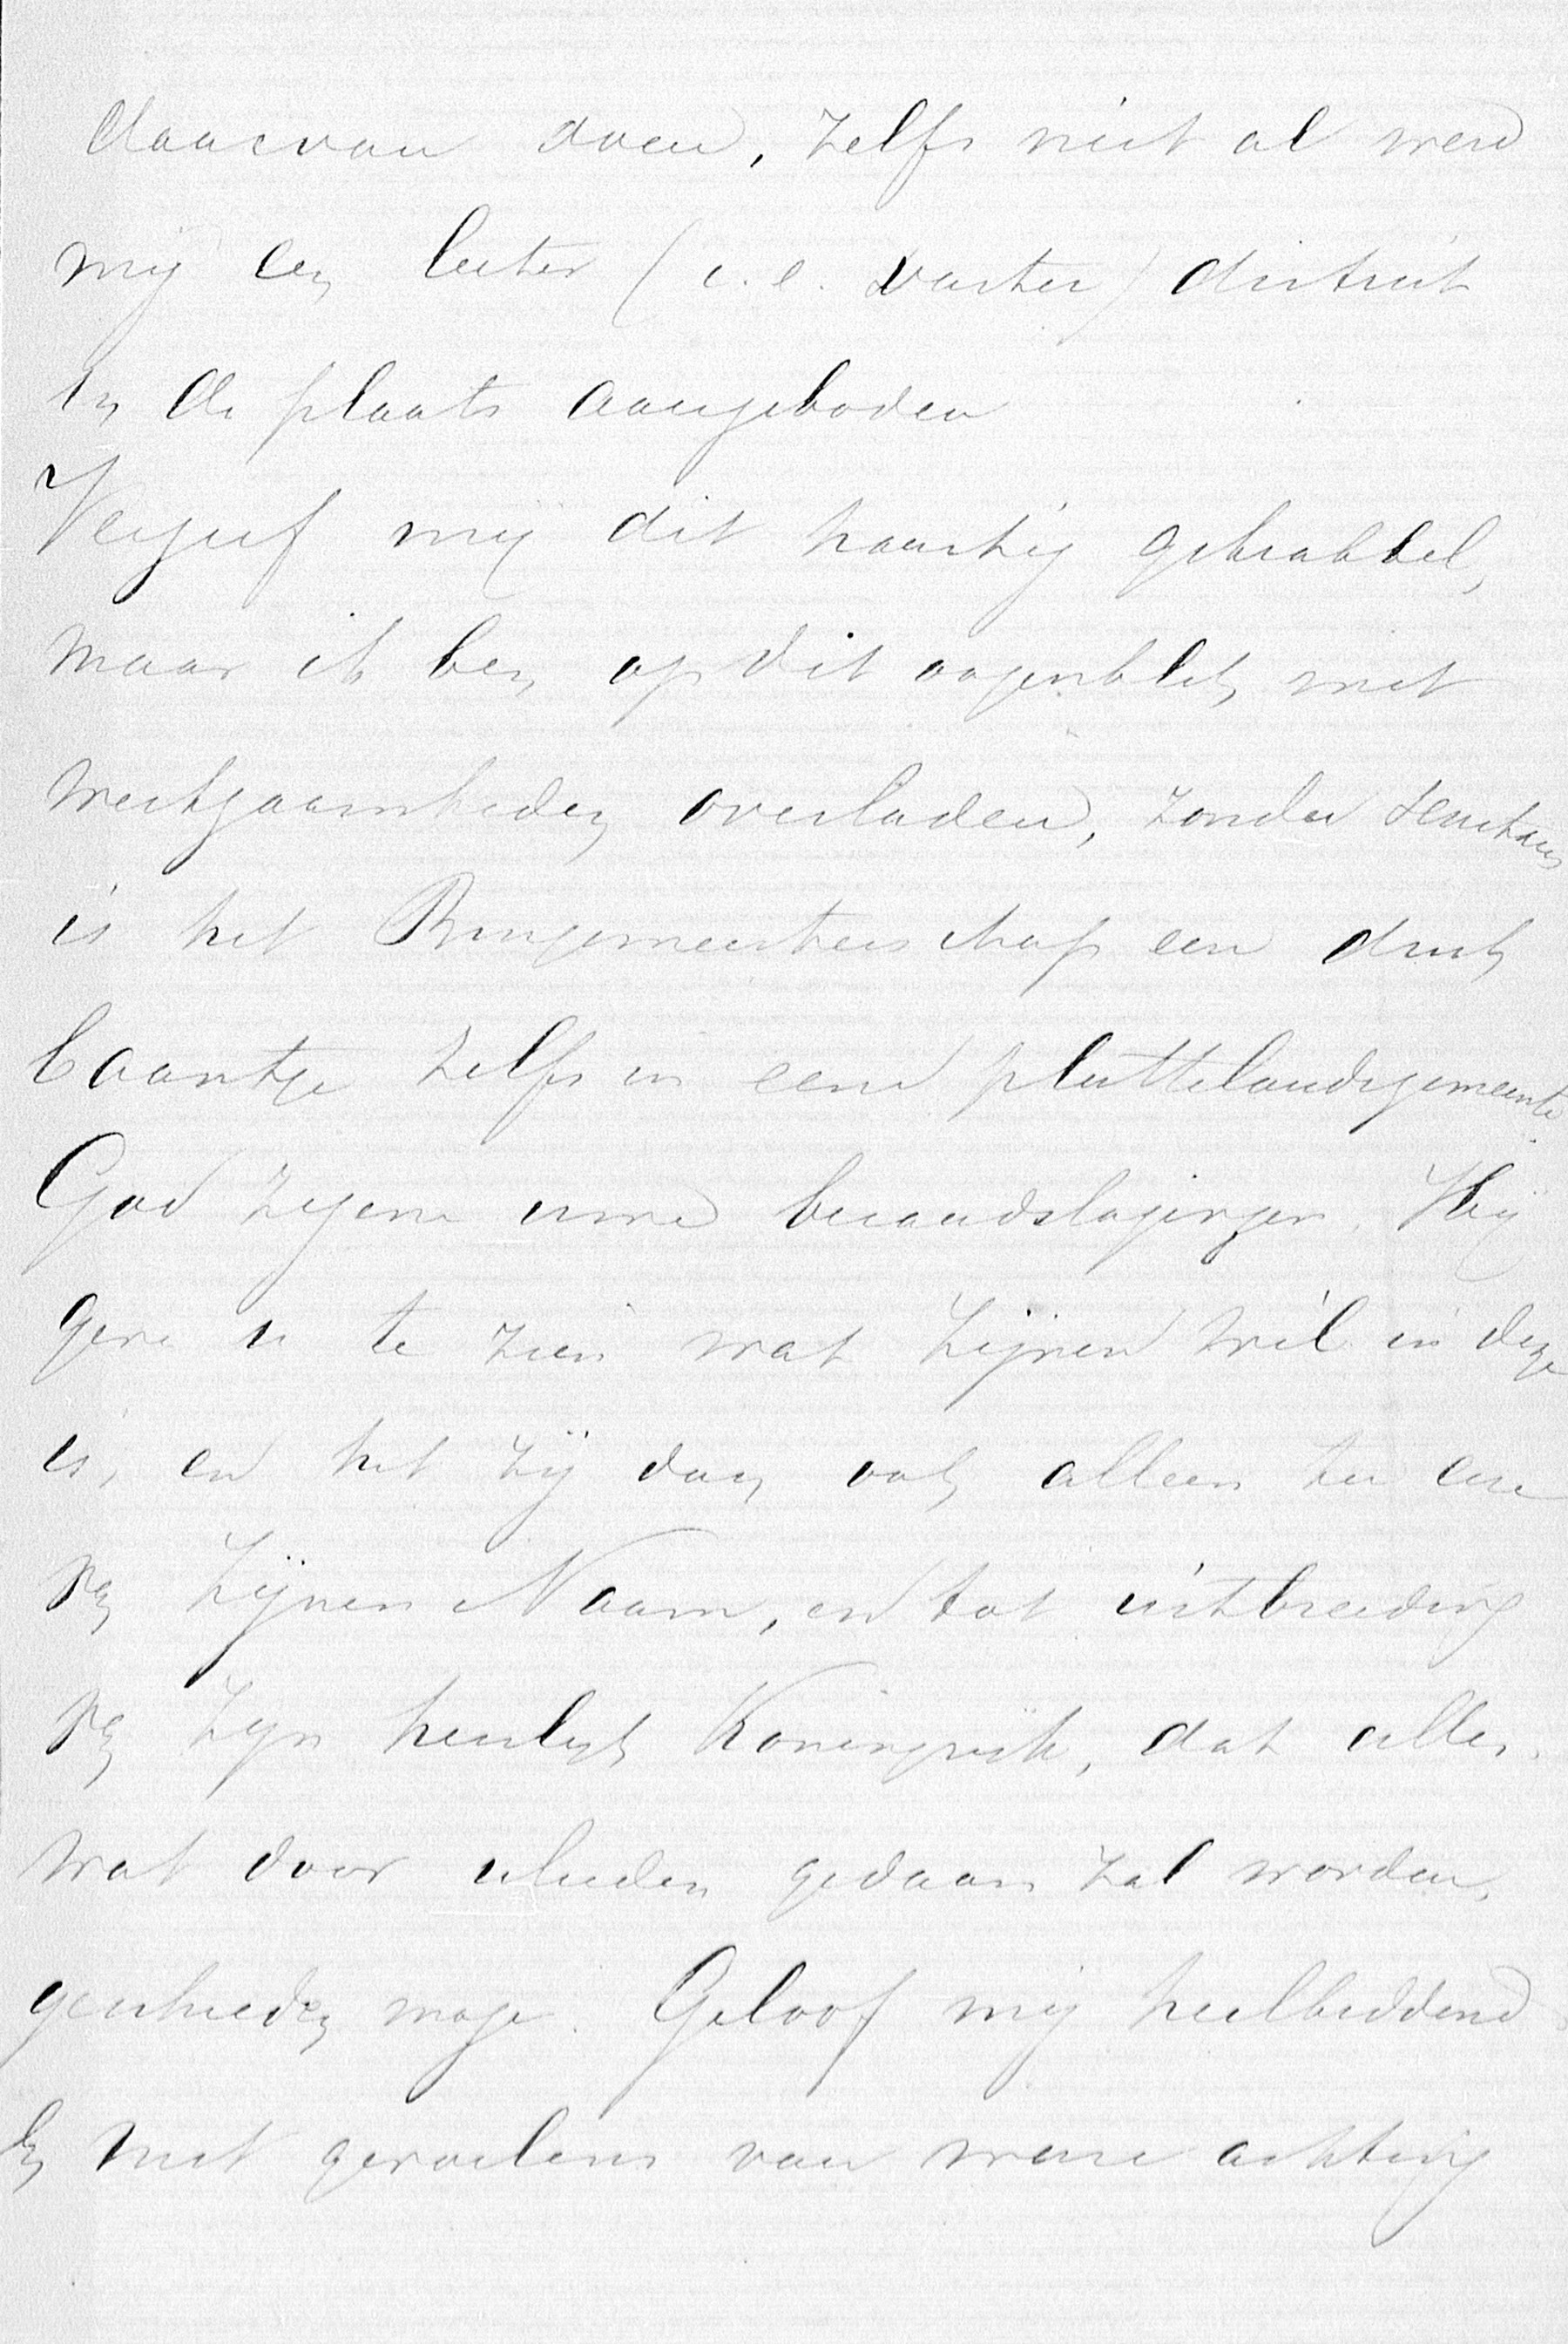 daarvan doen, zelfs niet al werd
mij een beter (i.e. vaster) district
in de plaats aangeboden
Vergeef mij dit haastig gekrabbel,
maar ik ben op dit oogenblik met
werkzaamheden overladen, zonder secretaris
is het Burgemeesterschap een druk
baantje zelfs in eene plattelandsgemeente.
God zegene uwe beraadslagingen. Hij
geve u te zien wat Zijnen wil in deze
is, en het zij dan ook alleen ter eere
van Zijnen Naam, en tot uitbreiding
van Zijn heerlijk Koningrijk, dat alles
wat door ulieden gedaan zal worden,
geschieden moge. Geloof mij heilbiddend
en met gevoelens van ware achting